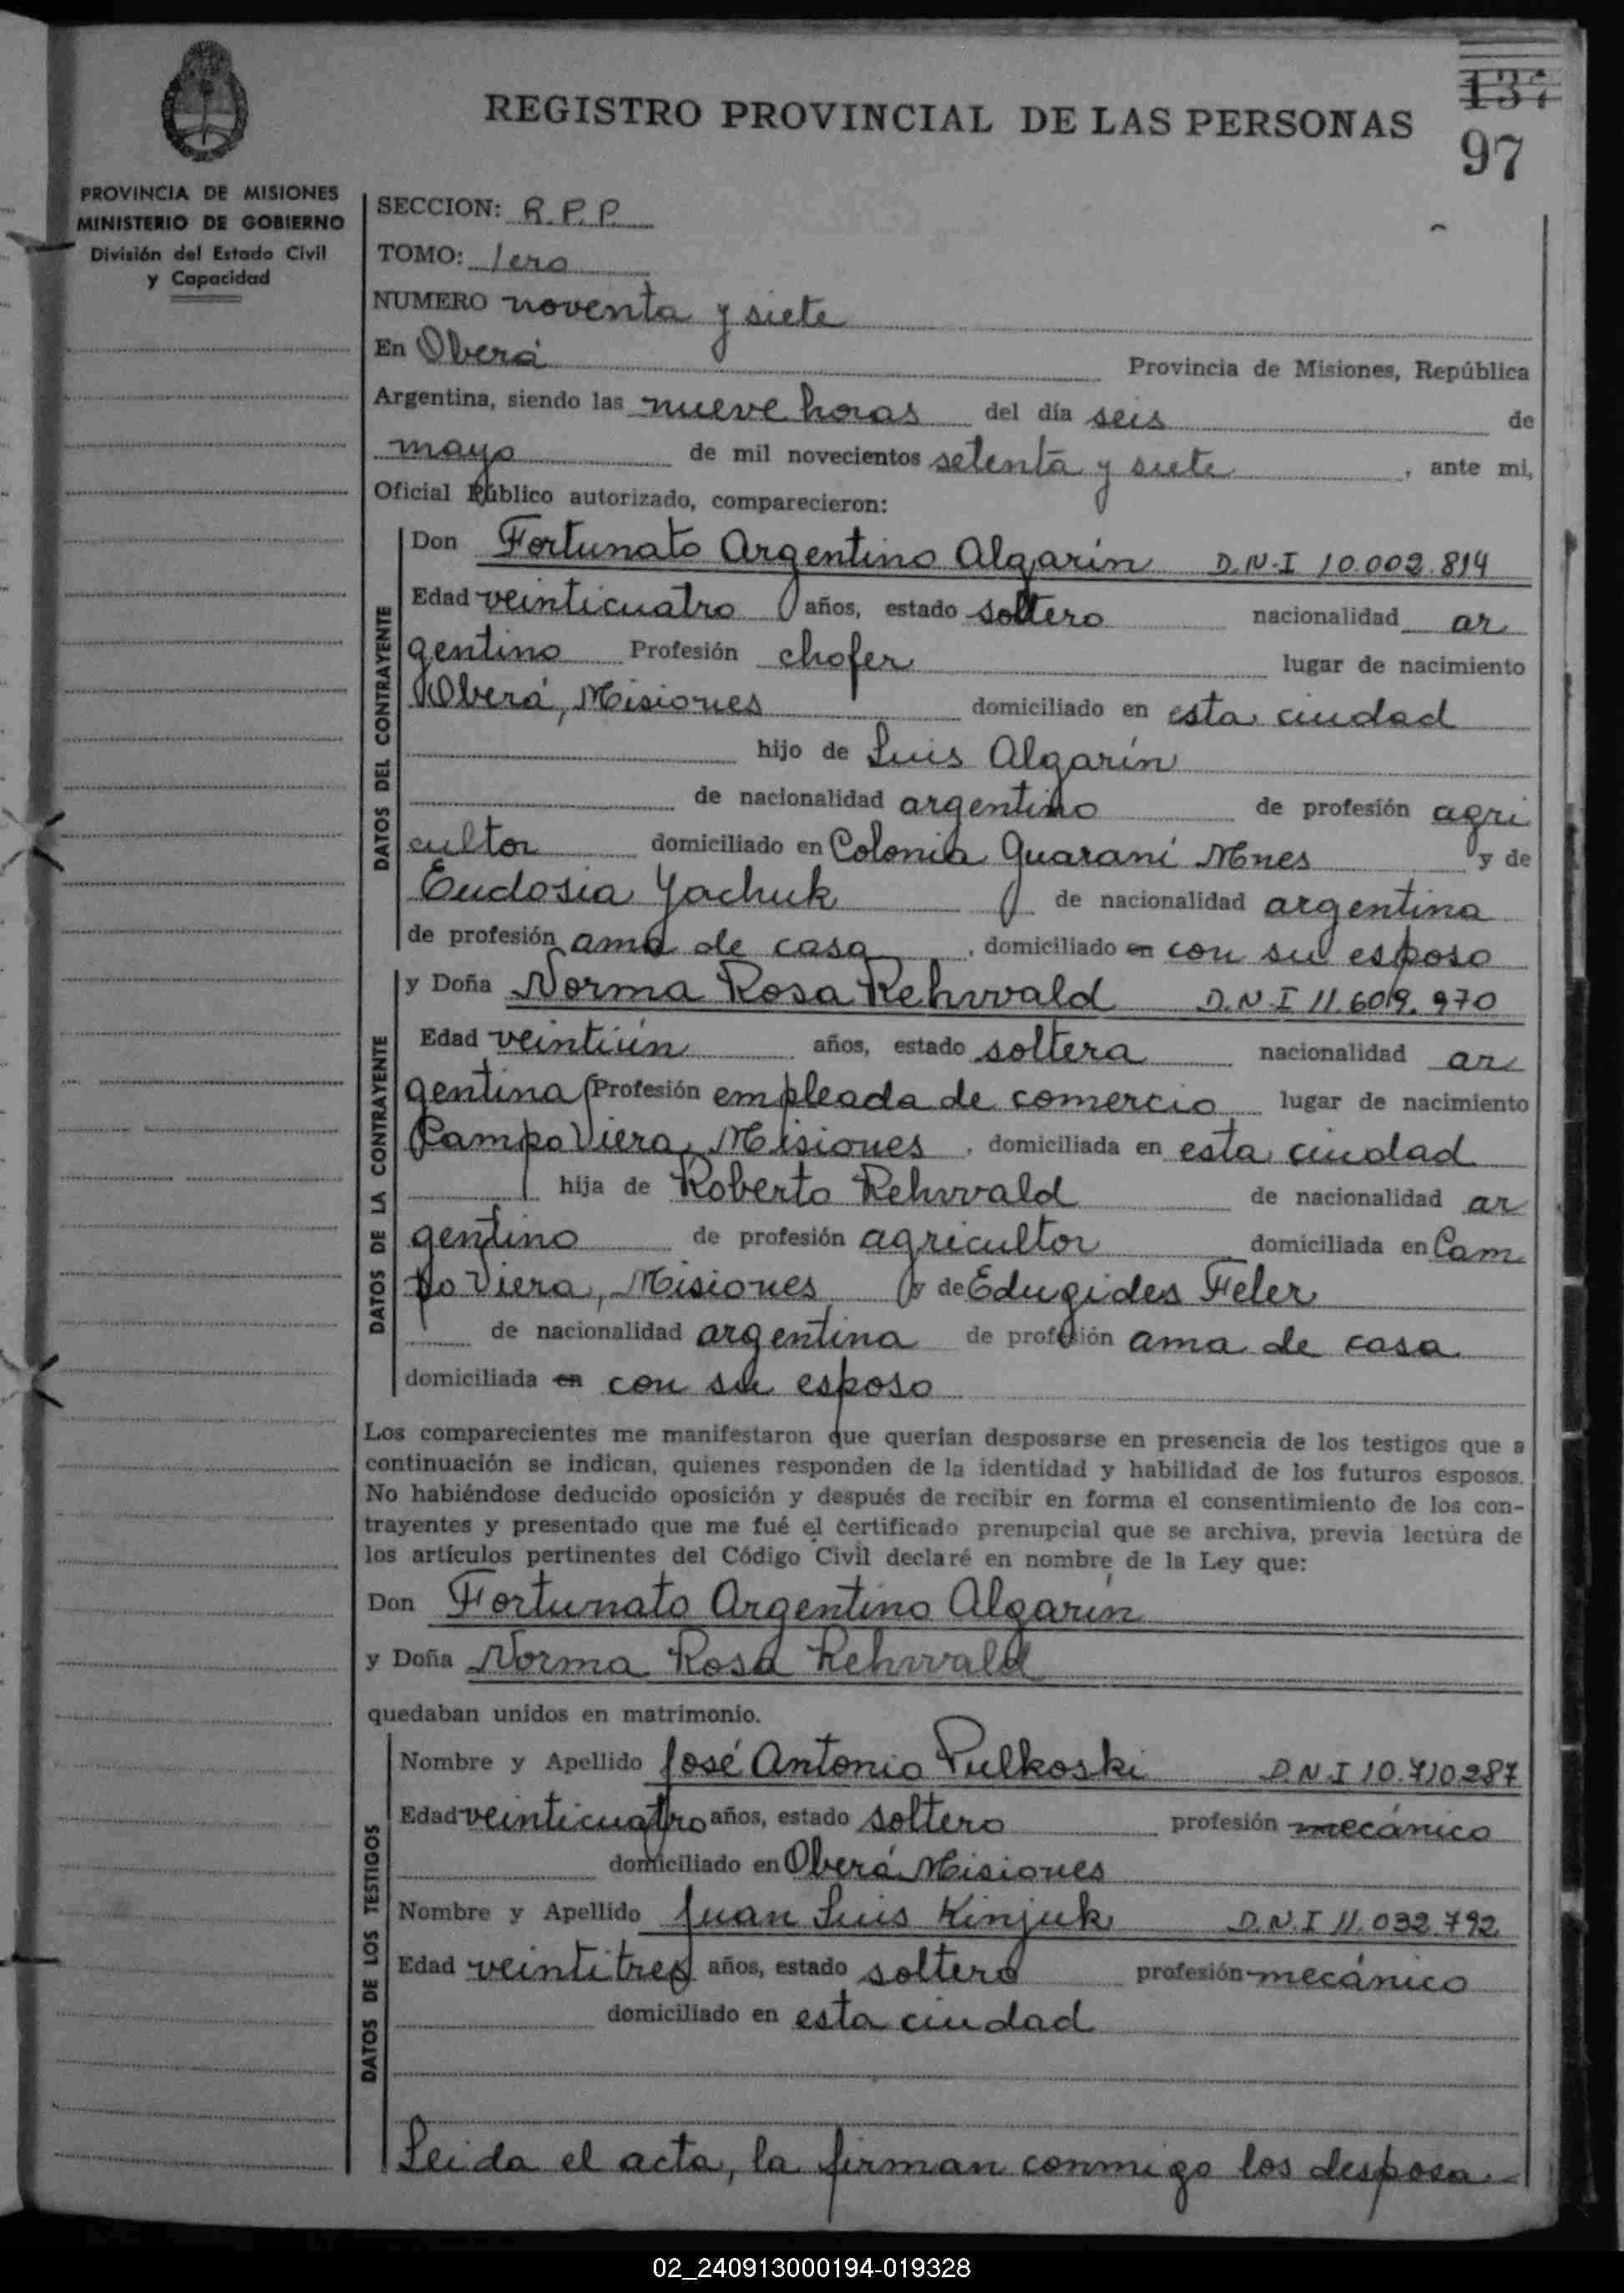 137
REGISTRO PROVINCIAL DE LAS PERSONAS
97
PROVINCIA DE MISIONES
MINISTERIO DE GOBIERNO
División del Estado Civil
y Capacidad
SECCION: R.P.P.
TOMO: 1ero
NUMERO noventa y siete
En Oberá Provincia de Misiones, República
Argentina, siendo las nueve horas del día seis de
mayo de mil novecientos setenta y siete, ante mi,
Oficial Público autorizado, comparecieron:
DATOS DEL CONTRAYENTE
Don Fortunato Argentino Algarín D.N.I 10.002.814
Edad veinticuatro años, estado soltero nacionalidad ar
gentino Profesión chofer lugar de nacimiento
Oberá, Misiones domiciliado en esta ciudad
hijo de Luis Algarín
de nacionalidad argentino de profesión agri
cultor domiciliado en Colonia Guaraní Mnes y de
Eudosia Yachuk de nacionalidad argentina
de profesión ama de casa, domiciliado en con su esposo
DATOS DE LA CONTRAYENTE
y Doña Norma Rosa Rehwald D.N.I 11.609.970
Edad veintiún años, estado soltera nacionalidad ar
gentina Profesión empleada de comercio lugar de nacimiento
Campo Viera, Misiones, domiciliada en esta ciudad
hija de Roberto Rehwald de nacionalidad ar
gentino de profesión agricultor domiciliada en Cam
po Viera, Misiones y de Edugides Feler
de nacionalidad argentina de profesión ama de casa
domiciliada en con su esposo
Los comparecientes me manifestaron que querían desposarse en presencia de los testigos que a
continuación se indican, quienes responden de la identidad y habilidad de los futuros esposos.
No habiéndose deducido oposición y después de recibir en forma el consentimiento de los con-
trayentes y presentado que me fué el certificado prenupcial que se archiva, previa lectura de
los artículos pertinentes del Código Civil declaré en nombre de la Ley que:
Don Fortunato Argentino Algarín
y Doña Norma Rosa Rehwald
quedaban unidos en matrimonio.
DATOS DE LOS TESTIGOS
Nombre y Apellido José Antonio Pulkoski D.N.I 10.710287
Edad veinticuatro años, estado soltero profesión mecánico
domiciliado en Oberá Misiones
Nombre y Apellido Juan Luis Kinjuk D.N.I 11.032.792
Edad veintitres años, estado soltero profesión mecánico
domiciliado en esta ciudad
Leida el acta, la firman conmigo los desposa-
02_240913000194-019328